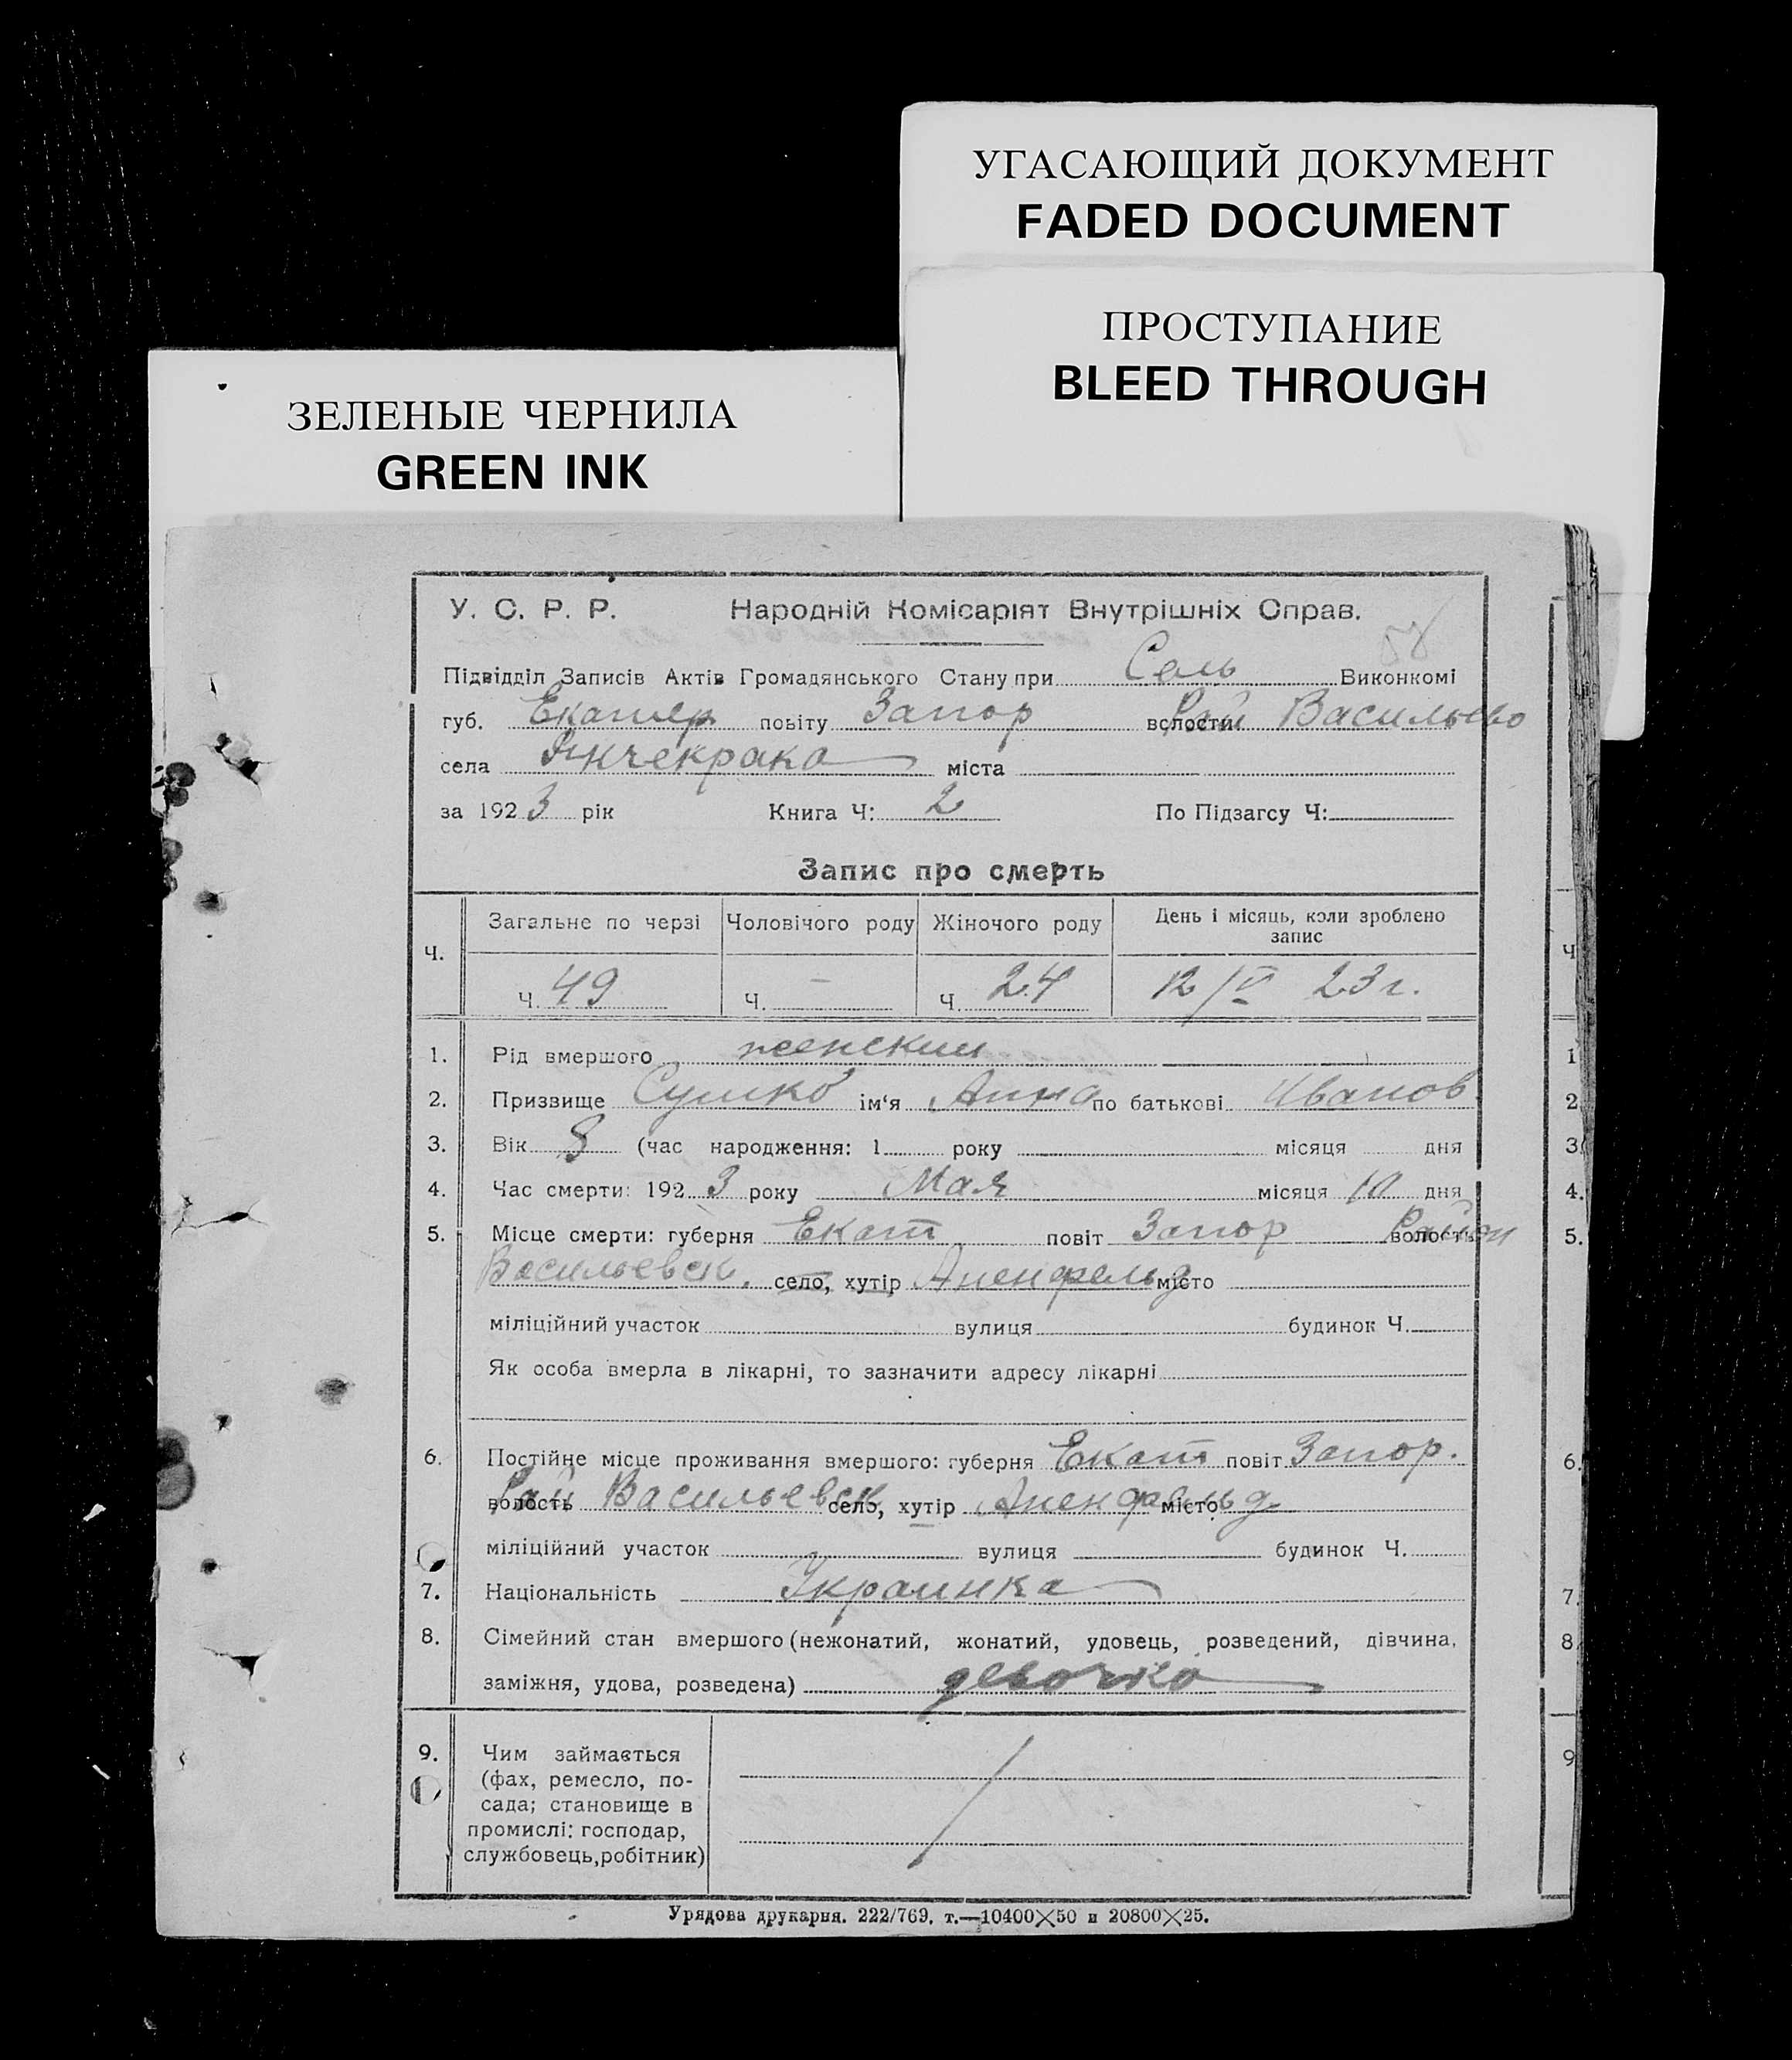 УГАСАЮЩИЙ ДОКУМЕНТ
FADED DOCUMENT
ПРОСТУПАНИЕ
BLEED THROUGH
ЗЕЛЕНЫЕ ЧЕРНИЛА
GREEN INK
У. С. Р. Р. Народній Комісаріят Внутрішніх Справ.
58
Підвідділ Записів Актів Громадянського Стану при Сель Виконкомі
губ. Екатер повіту Запор волости Рай Васильево
села Янчекрака міста
за 1923 рік Книга Ч: 2 По Підзагсу Ч:
Запис про смерть
Ч. Загальне по черзі Чоловічого роду Жіночого роду День і місяць, коли зроблено запис
Ч. 49 Ч. – Ч. 24 12/V 23 г.
1. Рід вмершого женский
2. Призвище Сушко ім'я Анна по батькові Иванов
3. Вік 8 (час народження: 1 року місяця дня
4. Час смерти: 1923 року Мая місяця 10 дня
5. Місце смерти: губерня Екат повіт Запор волость Район
Васильевск. село, хутір Апенфельд місто
міліційний участок вулиця будинок Ч.
Як особа вмерла в лікарні, то зазначити адресу лікарні
6. Постійне місце проживання вмершого: губерня Екат повіт Запор.
волость Рай Васильевск село, хутір Апенфельд місто
міліційний участок вулиця будинок Ч.
7. Національність Украинка
8. Сімейний стан вмершого (нежонатий, жонатий, удовець, розведений, дівчина,
заміжня, удова, розведена) девочка
9. Чим займається
(фах, ремесло, по-
сада; становище в
промислі: господар,
службовець, робітник)
Урядова друкарня. 222/769. т.—10400×50 и 20800×25.
Ч
1
2
3
4.
5.
6.
7.
8
9